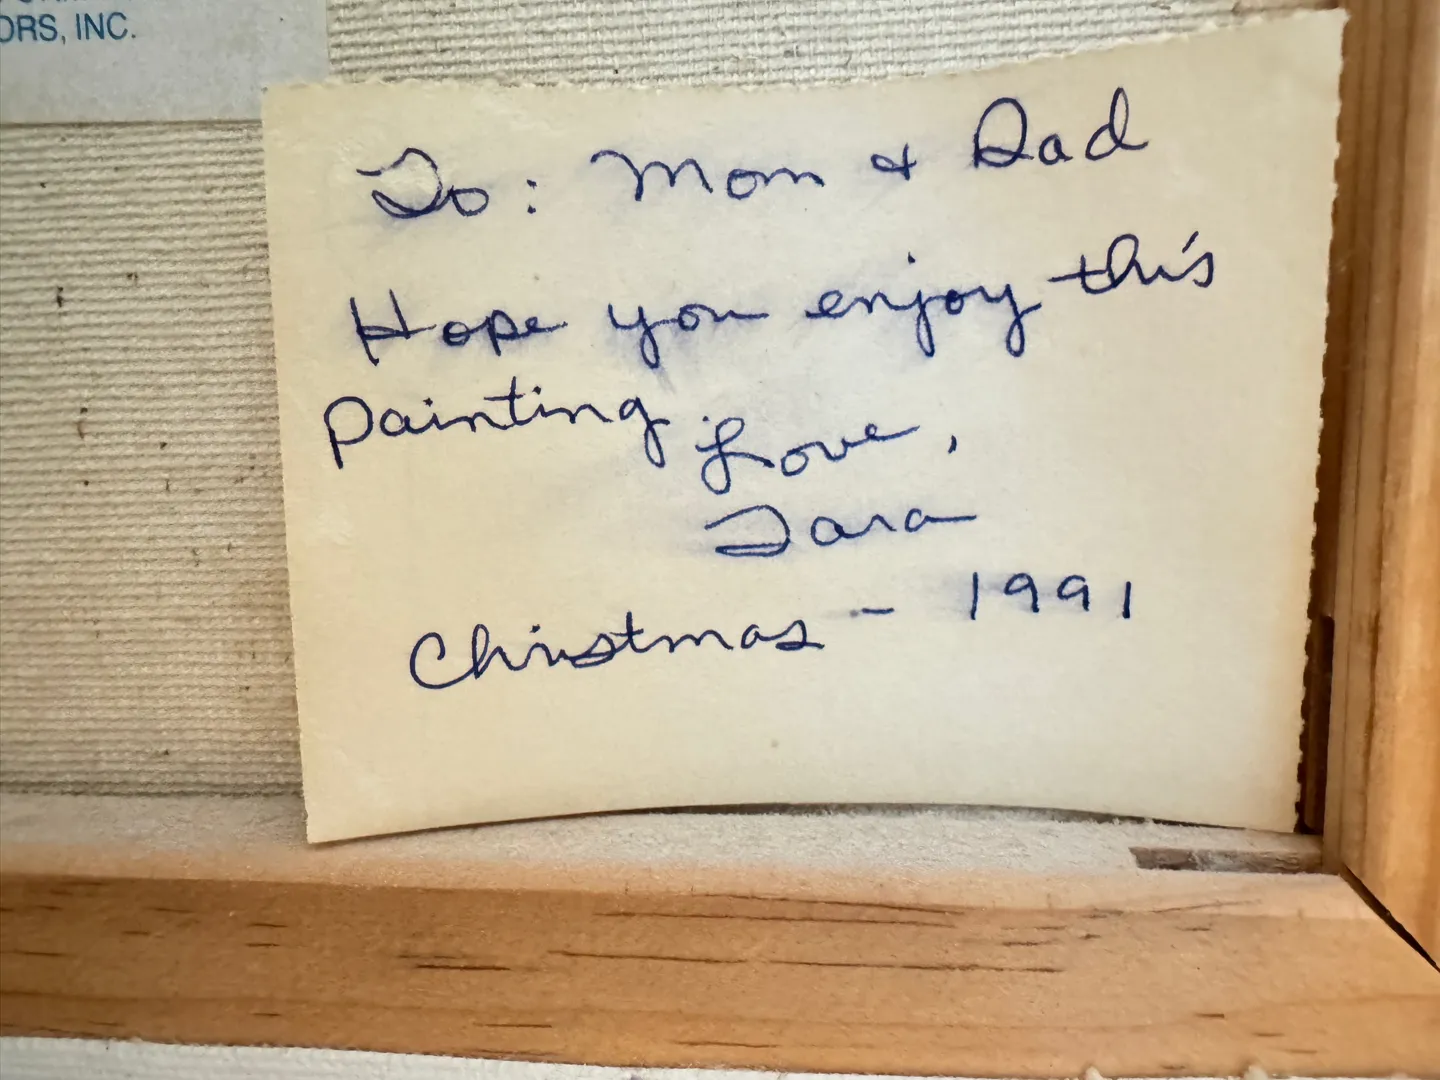 ORS, INC.
To: Mom & Dad
Hope you enjoy this
painting
Love,
Tara
Christmas - 1991